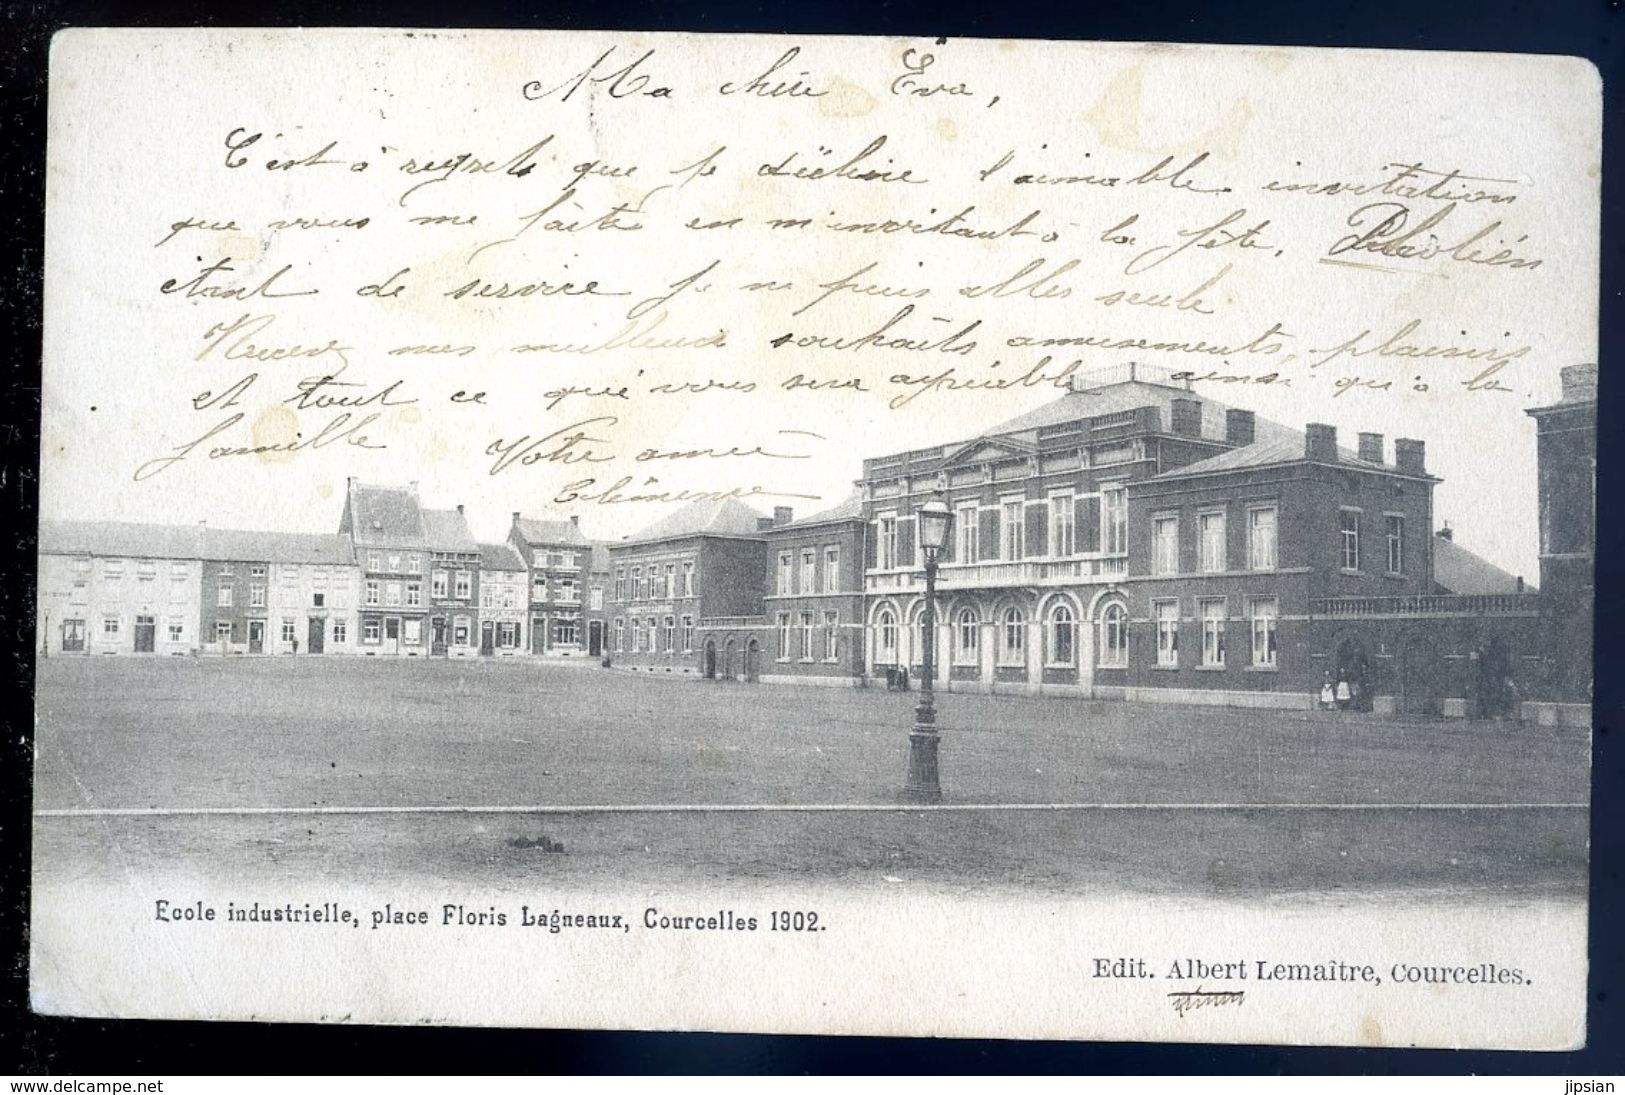 Ma chère Eva,
C'est à regret que je décline l'aimable invitation
que vous me faite en m'invitant à la fête.
étant de service je ne puis aller seule
Recevez mes meilleux souhaits amusements, plaisirs
et tout ce qui vous sera agréable ainsi qu'à la
famille Votre amie
Clémence
Ecole industrielle, place Floris Lagneaux, Courcelles 1902.
Edit. Albert Lemaître, Courcelles.
www.delcampe.net
jipsian